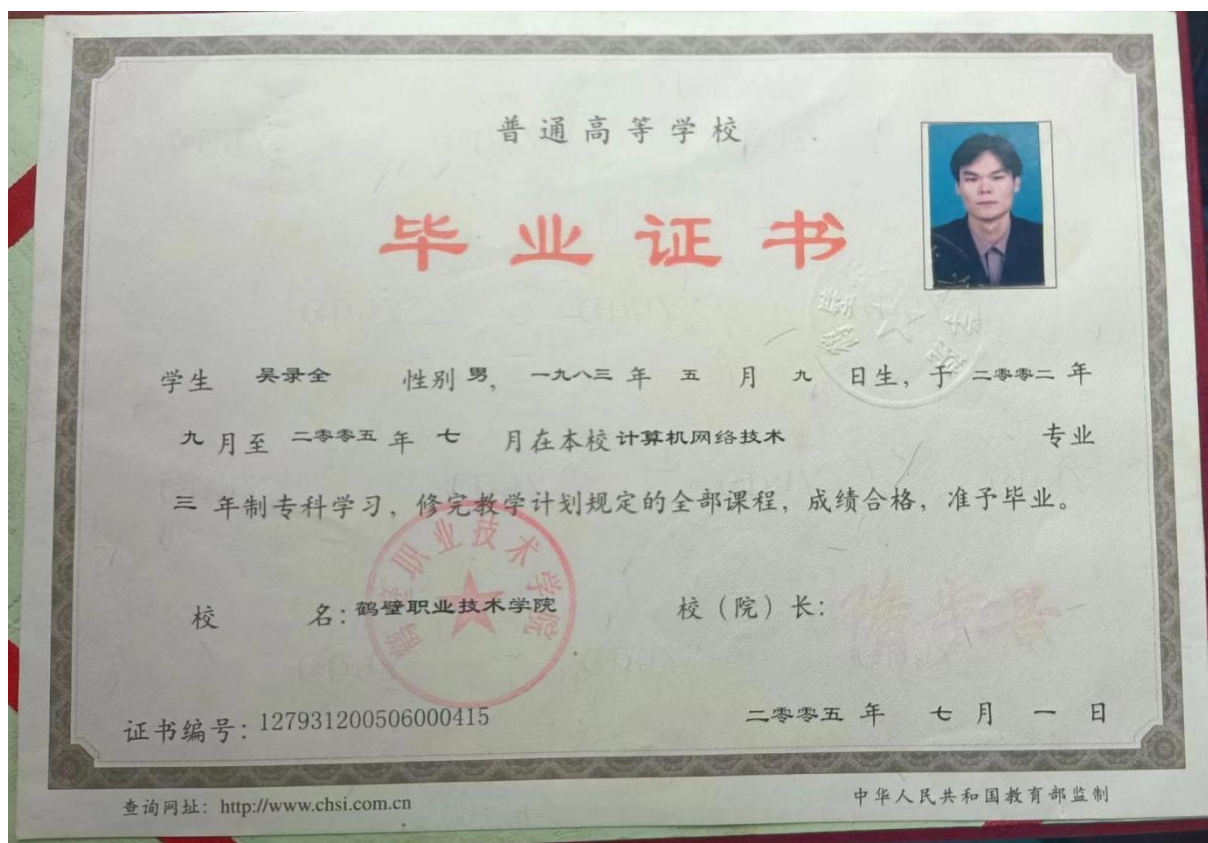 普通高等学校
毕业证书
学生 吴录全 性别 男, 一九八三 年 五 月 九 日生, 于 二零零二 年
九 月至 二零零五 年 七 月在本校 计算机网络技术 专业
三 年制专科学习, 修完教学计划规定的全部课程, 成绩合格, 准予毕业。
校 名: 鹤壁职业技术学院 校(院)长:
鹤壁职业技术学院
证书编号: 127931200506000415 二零零五 年 七 月 一 日
查询网址: http://www.chsi.com.cn 中华人民共和国教育部监制